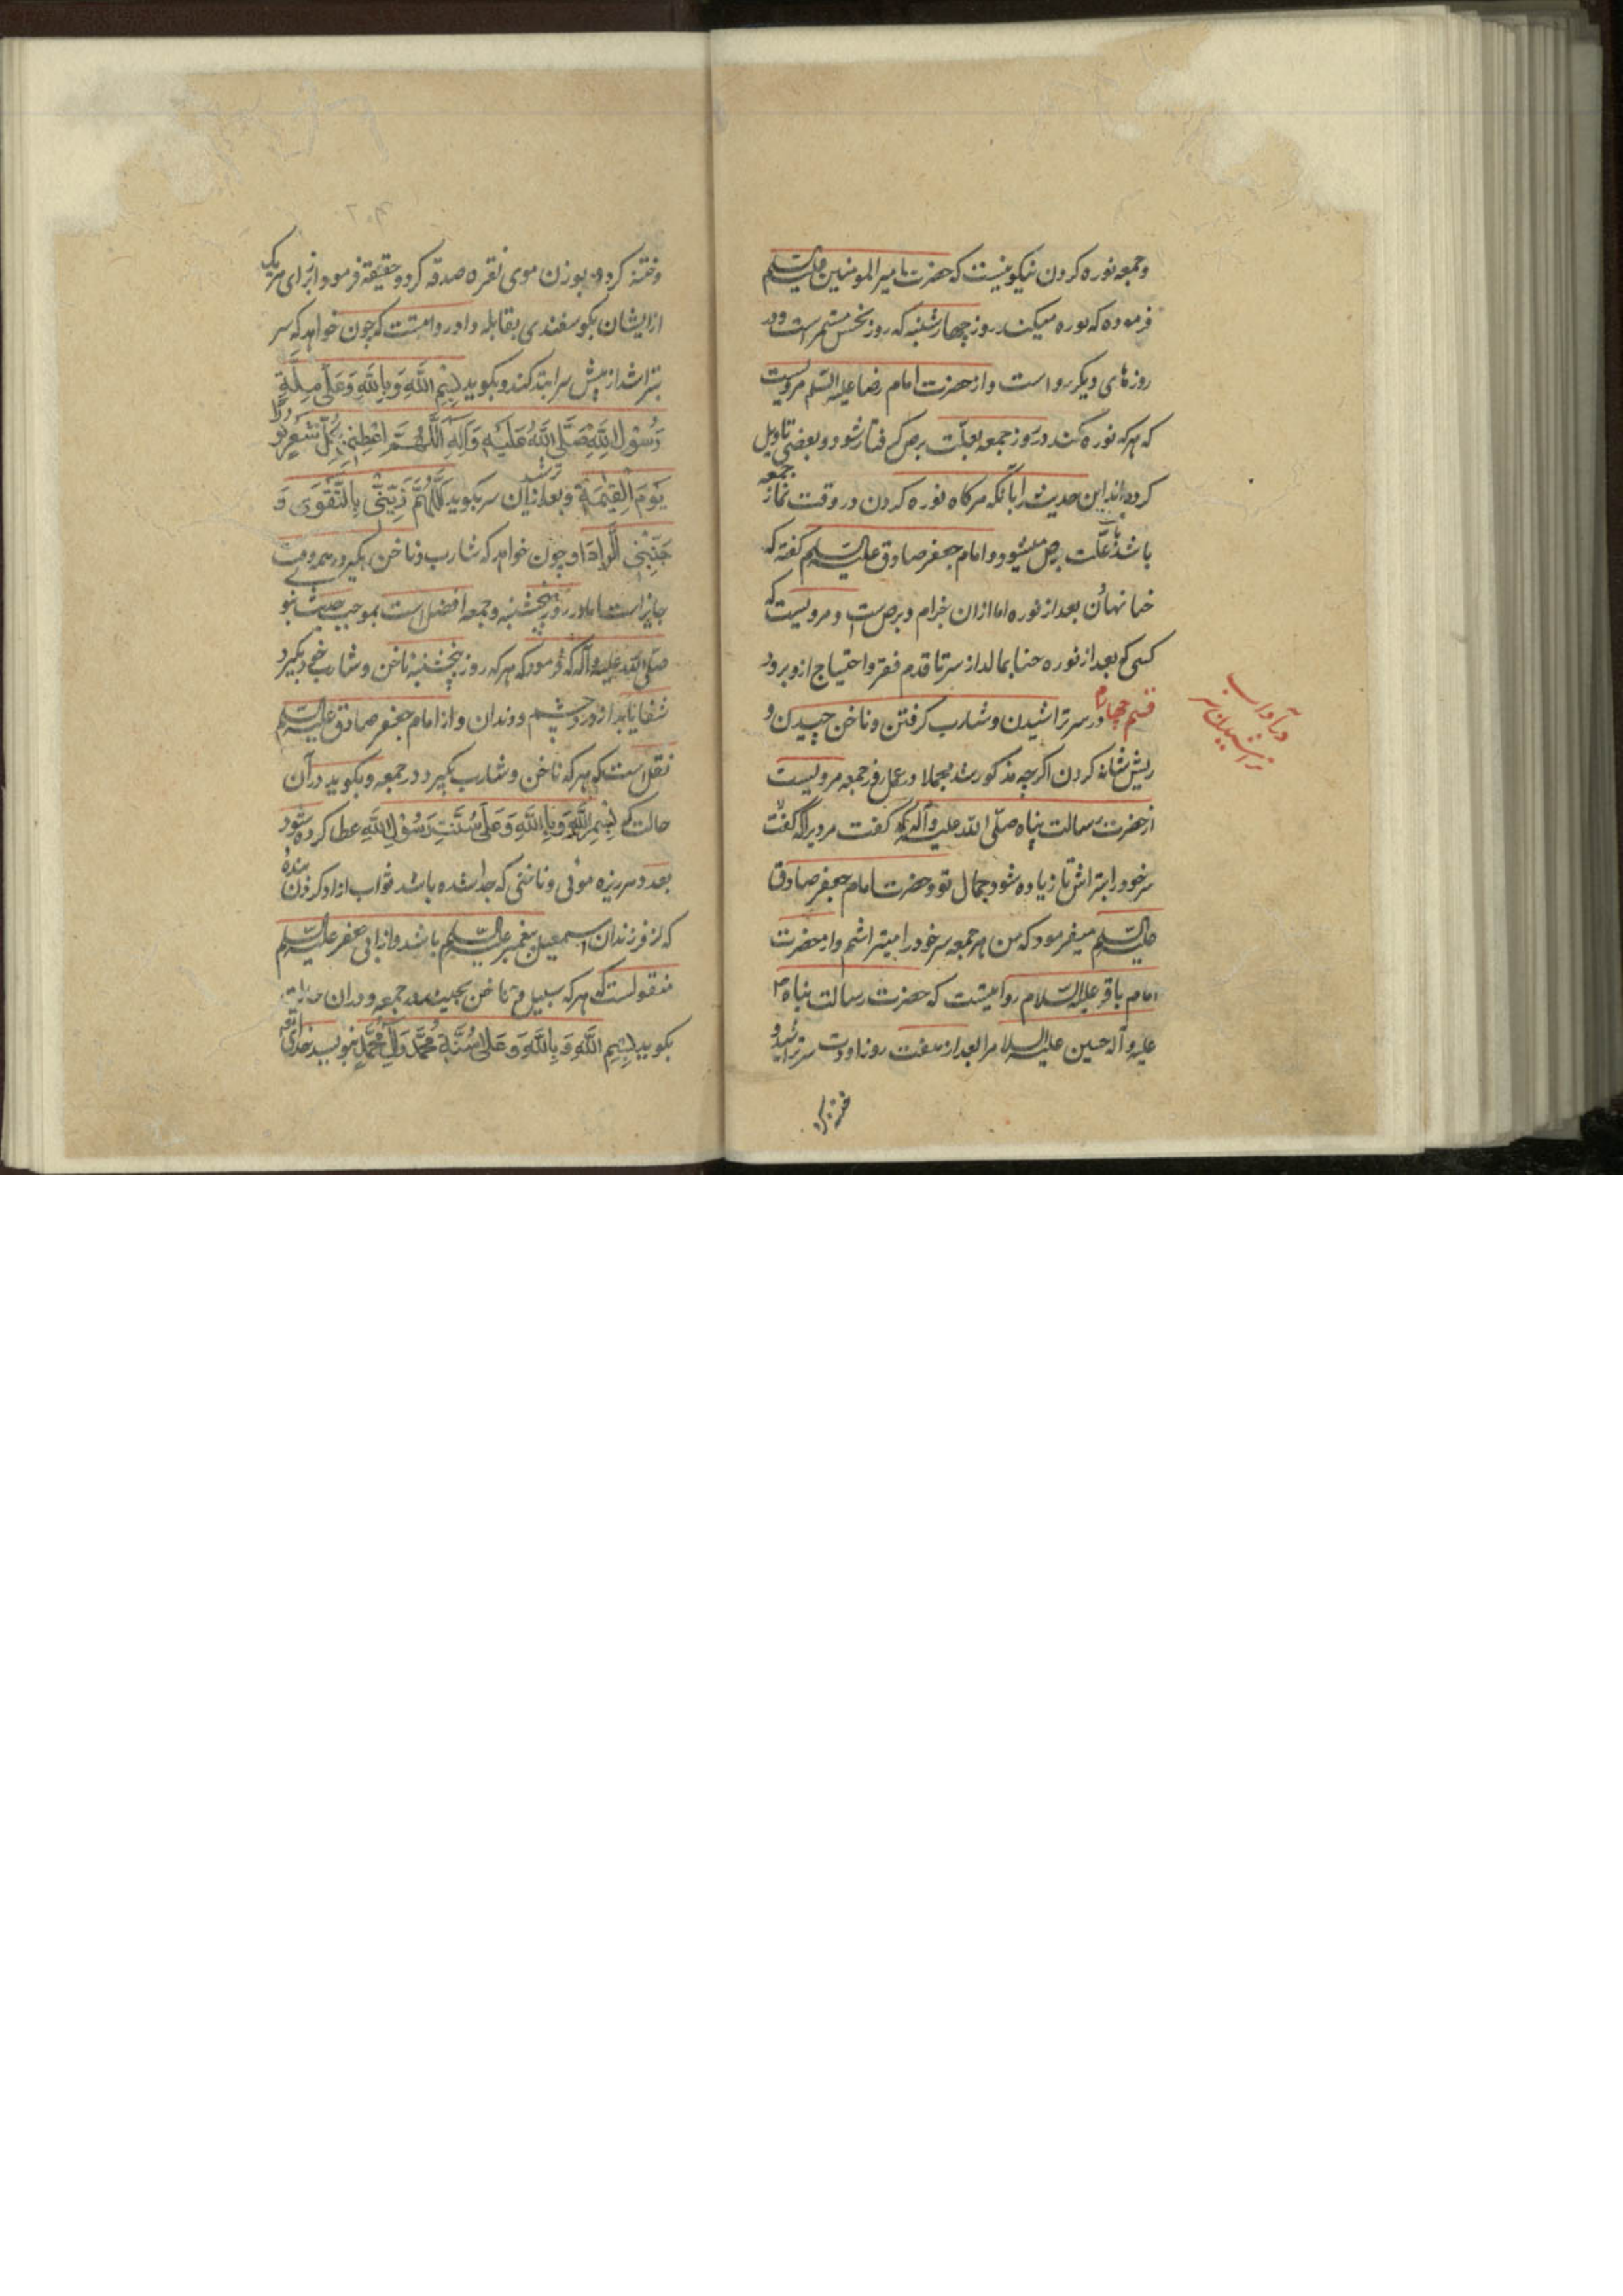 وجمعه نوره کردن نیکو نیست که حضرت امیر المومنین علیه السلم
فرموده که نوره میکند روز چهارشنبه که روز نحس مستمر است ودر
روزهای دیکر رواست واز حضرت امام رضا علیه السلم مرویست
که هرکه نوره کند در روز جمعه بعلت برص کرفتار شود و بعضی تاویل
کرده اند این حدیث را بآنکه هرکاه نوره کردن در وقت نماز جمعه
باشد باعث علّت برص میشود و امام جعفر صادق علیه السلم کفته که
حنا نهادن بعد از نوره امانست از جذام و برص و مرویست که
کسی که بعد از نوره حنا بمالد از سر تا قدم فقر و احتیاج ازو برود
قسم چهارم در سر تراشیدن و شارب کرفتن و ناخن چیدن و
در آداب سر تراشیدن
ریش شانه کردن اکرچه مذکور شد مجملا در عمل روز جمعه مرویست
از حضرت رسالت پناه صلّی الله علیه وآله که کفت مردیرا که
سر خود را بتراش تا زیاده شود جمال تو و حضرت امام جعفر صادق
علیه السلم میفرمود که من هر جمعه سر خود را میتراشم و از حضرت
امام باقر علیه السّلام روایتست که حضرت رسالت پناه
علیه وآله حسین علیه السلام را بعد از هفت روز از ولادت سر تراشید و
ختنه کرد
وختنه کرد و بوزن موی نقره صدقه کرد و عقیقه فرمود از برای هر یک
از ایشان بکوسفندی بقابله داد و روایتست که چون خواهد که سر
بتراشد از پیش سر ابتدا کند و بکوید بِسْمِ اللَّهِ وَبِاللَّهِ وَعَلَی مِلَّةِ
رَسُولِ اللَّهِ صَلَّی اللَّهُ عَلَیْهِ وَآلِهِ اَللَّهُمَّ اَعْطِنِی بِکُلِّ شَعْرٍ نُورًا
یَوْمَ الْقِیٰمَةِ و بعد از تراشیدن سر بکوید اَللَّهُمَّ زَیِّنِّی بِالتَّقْوَی وَ
جَنِّبْنِی الرَّدَا و چون خواهد که شارب و ناخن بکیرد در همه وقت
جایز است اما در روز پنجشنبه و جمعه افضل است بموجب حدیث نبوی
صلّی الله علیه وآله که فرمود که هرکه روز پنجشنبه ناخن و شارب خود بکیرد
شفا یابد از درد چشم و دندان و از امام جعفر صادق علیه السلم
نقل است که هرکه ناخن و شارب بکیرد در جمعه و بکوید در آن
حالت که بِسْمِ اللَّهِ وَبِاللَّهِ وَعَلَی سُنَّتِ رَسُوْلِ اللَّهِ عطا کرده شود
بعدد هر ریزه موئی و ناخنی که جدا شده باشد ثواب ازاد کردن بنده
که از فرزندان اسمعیل پیغمبر علیه السّلم باشد و از ابی جعفر علیه السلم
منقولست که هرکه سبیل و ناخن بچیند در جمعه و در ان حالت
بکوید بِسْمِ اللَّهِ وَبِاللَّهِ وَعَلَی سُنَّةِ مُحَمَّدٍ وَآلِ مُحَمَّدٍ بنویسد خدای